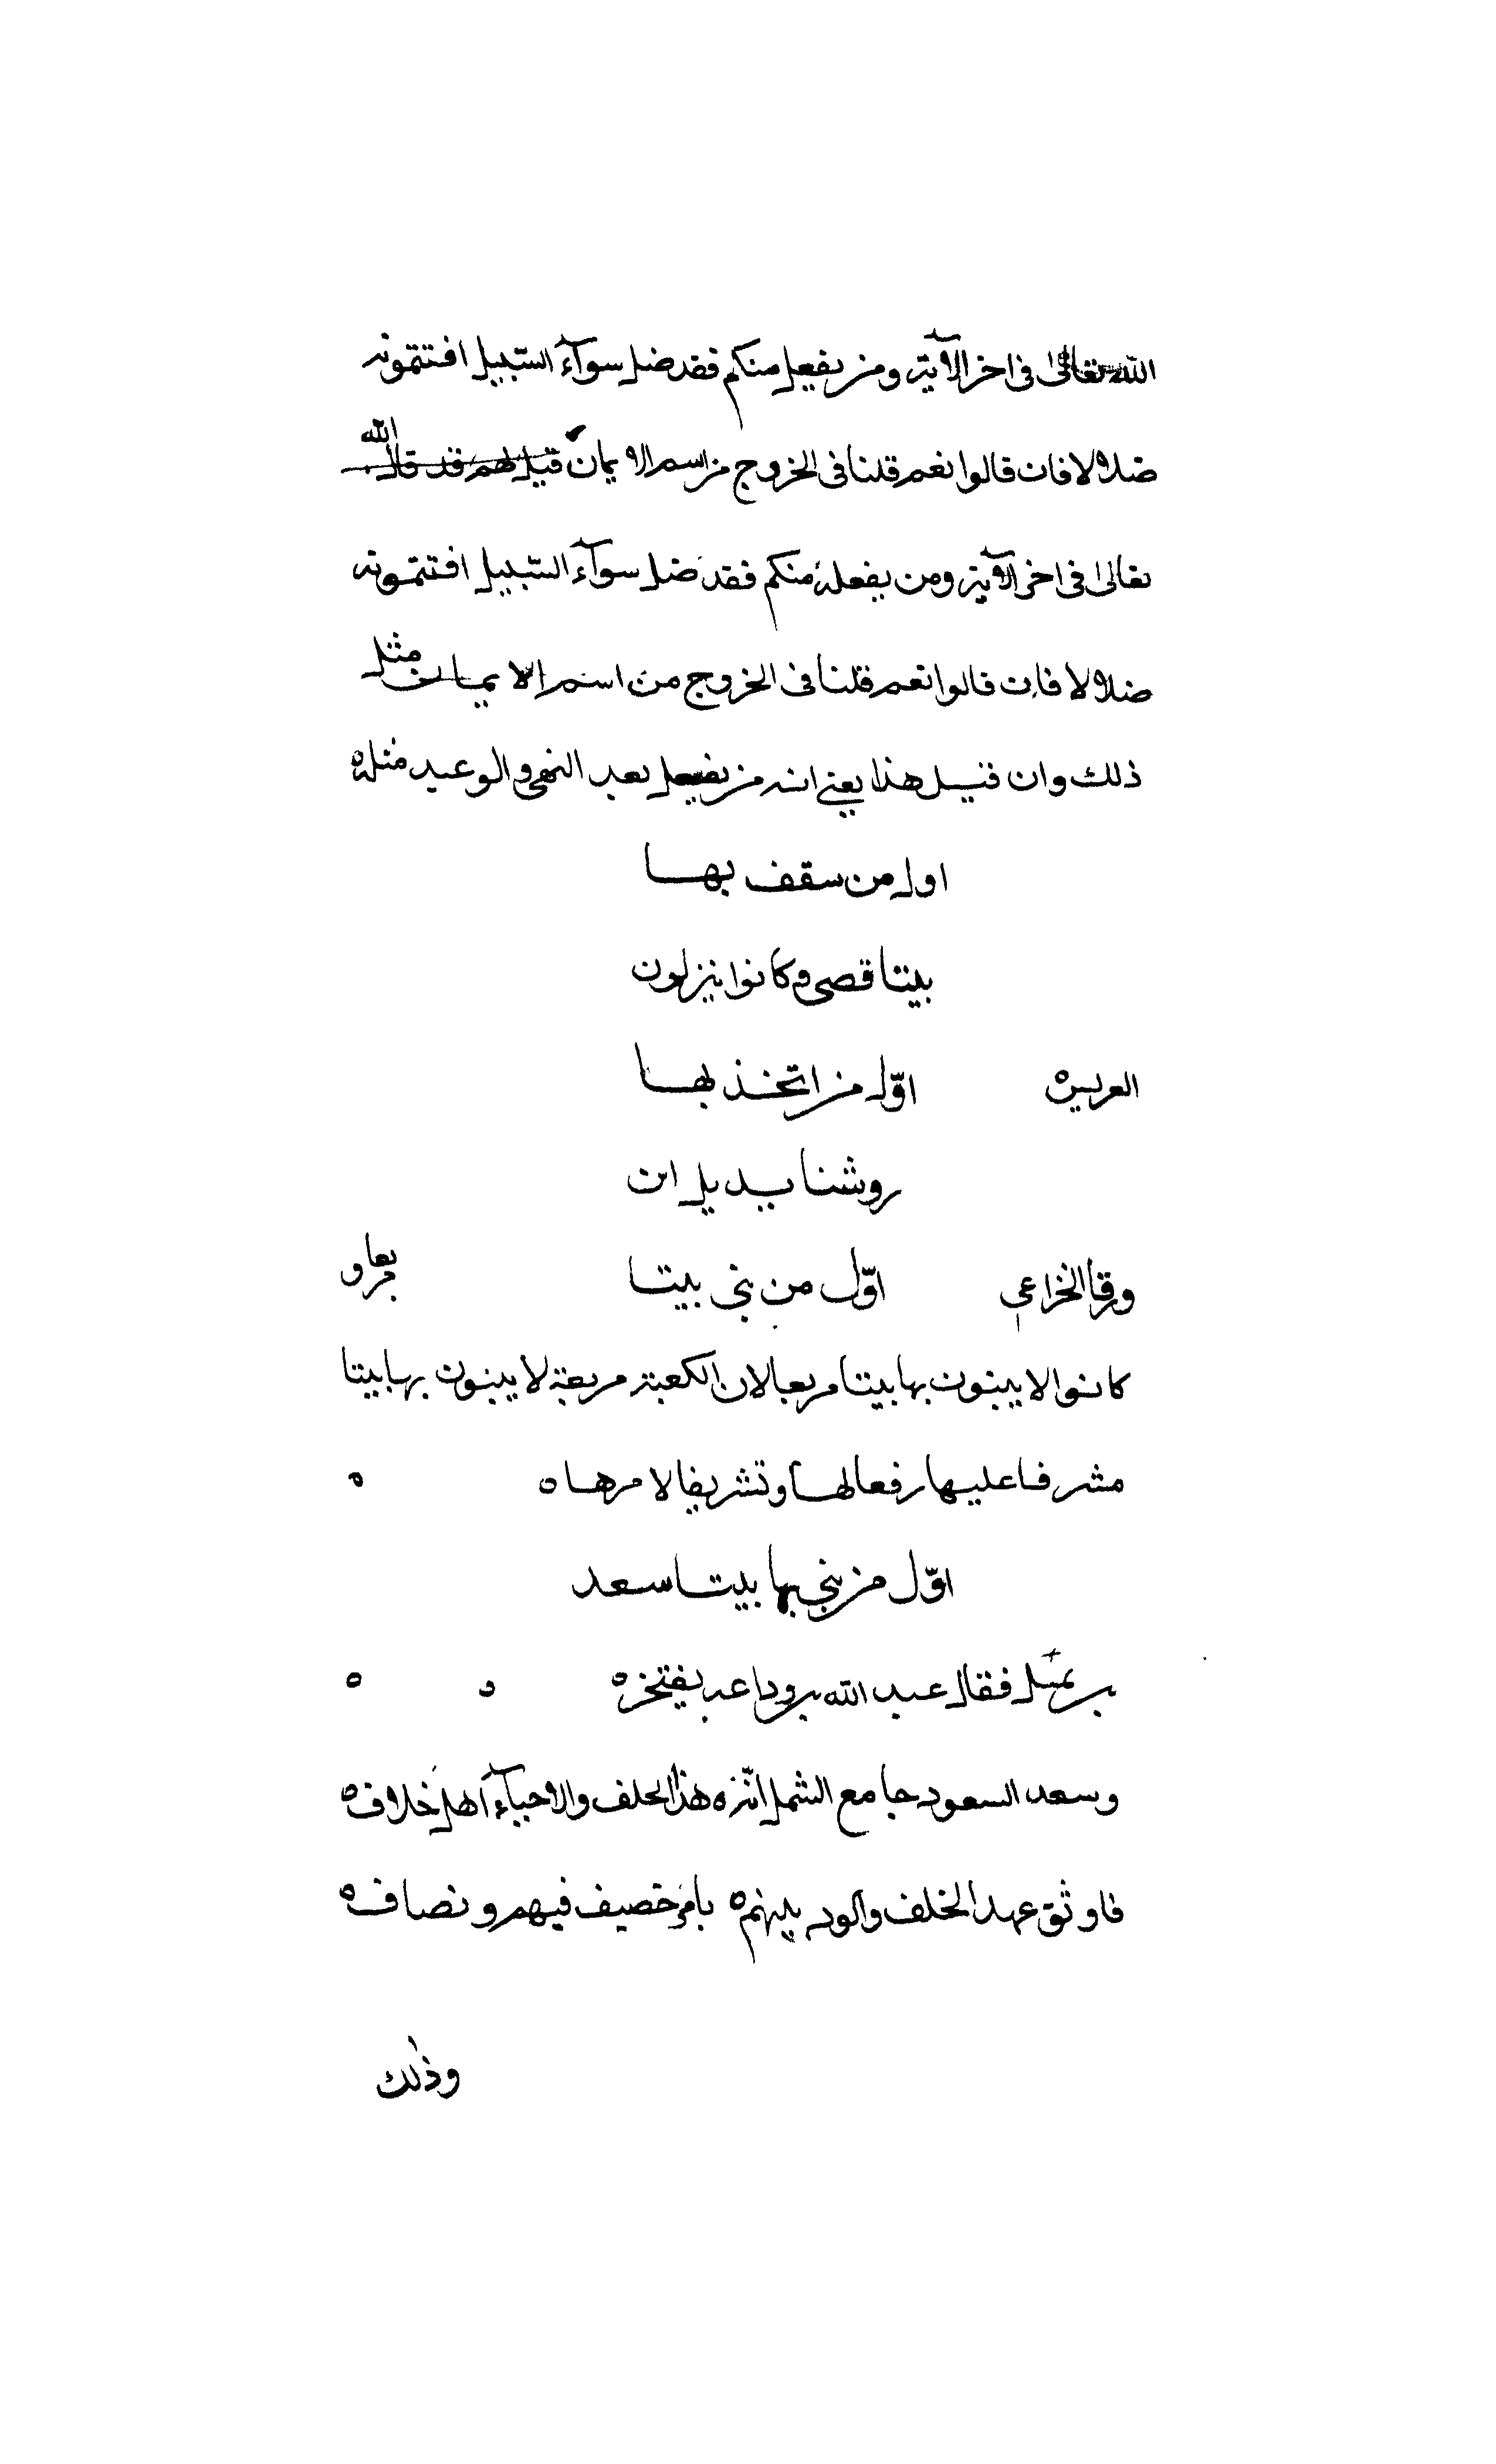 الله تعالى فى اخر الآية ومن يفعل منكم فقد ضل سوآء السّبيل افتتمونه
ضلالا فان قالوا نعم قلنا فى الخروج من اسم الايمان قيل لهم قد قال الله
تعالى فى اخر الآية ومن يفعله منكم فقد ضل سوآء السّبيل افتتمونه
ضلالا فان قالوا نعم قلنا فى الخروج من اسم الايمان مثل
ذلك وان قيل هذا يعنى انه من يفعل بعد النهى والوعيد مثله ه
اول من سقف بها
بيتا قصى وكانوا ينزلون
العريس ه اوّل من اتخذ بها
روشنا بديل ابن
ورقا الخزاعى اوّل من بنى بيتا مربعا و
كانوا لا يبنون بها بيتا مربعا لان الكعبة مربعة لا يبنون بها بيتا
مشرفا عليها رفعا لها وتشريفا لامرها ه ه
اوّل من بنى بها بيتا سعد
بن فقال عبد الله بن وداعه يفتخر ه ه ه
وسعد السعود جامع الشمل انّه هذا الحلف والاحيآء اهل خلاف ه
فاوثق عهد الخلف والود بينهم ه بامر خصيف فيهم ونصاف ه
وذلك